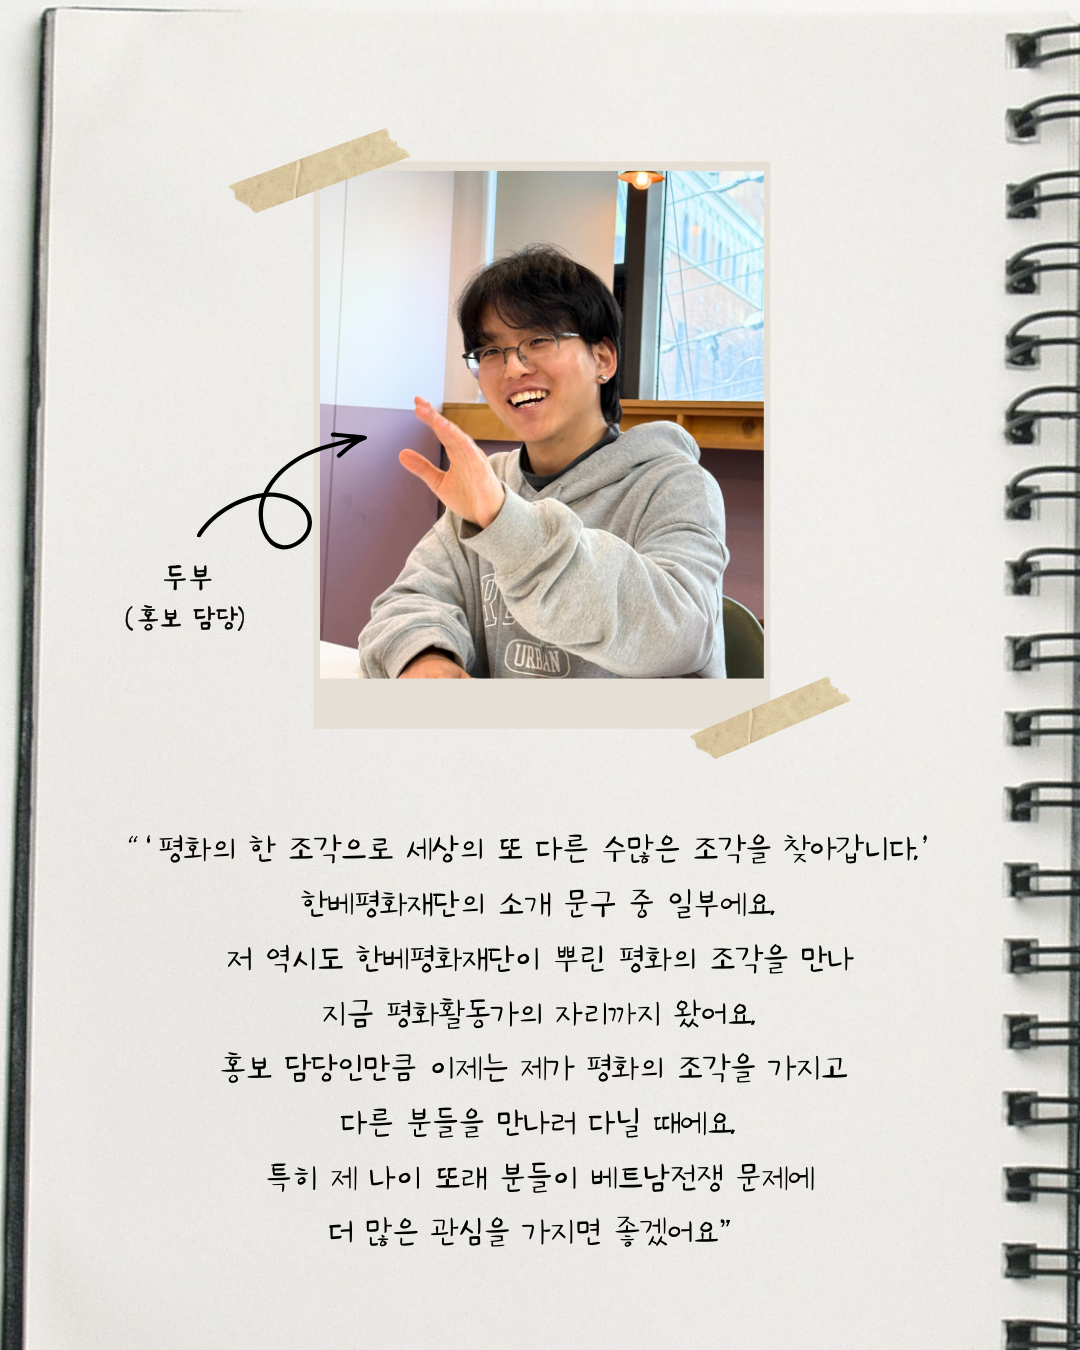 두부
(홍보 담당)
URBAN
“ ‘평화의 한 조각으로 세상의 또 다른 수많은 조각을 찾아갑니다.’
한베평화재단의 소개 문구 중 일부에요.
저 역시도 한베평화재단이 뿌린 평화의 조각을 만나
지금 평화활동가의 자리까지 왔어요.
홍보 담당인만큼 이제는 제가 평화의 조각을 가지고
다른 분들을 만나러 다닐 때에요.
특히 제 나이 또래 분들이 베트남전쟁 문제에
더 많은 관심을 가지면 좋겠어요”